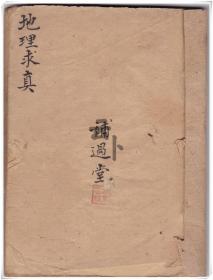 地理求真
過堂